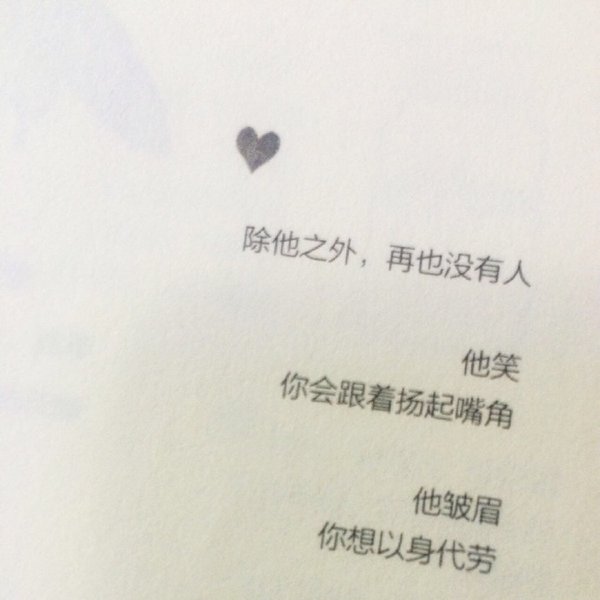 除他之外，再也没有人
他笑
你会跟着扬起嘴角
他皱眉
你想以身代劳